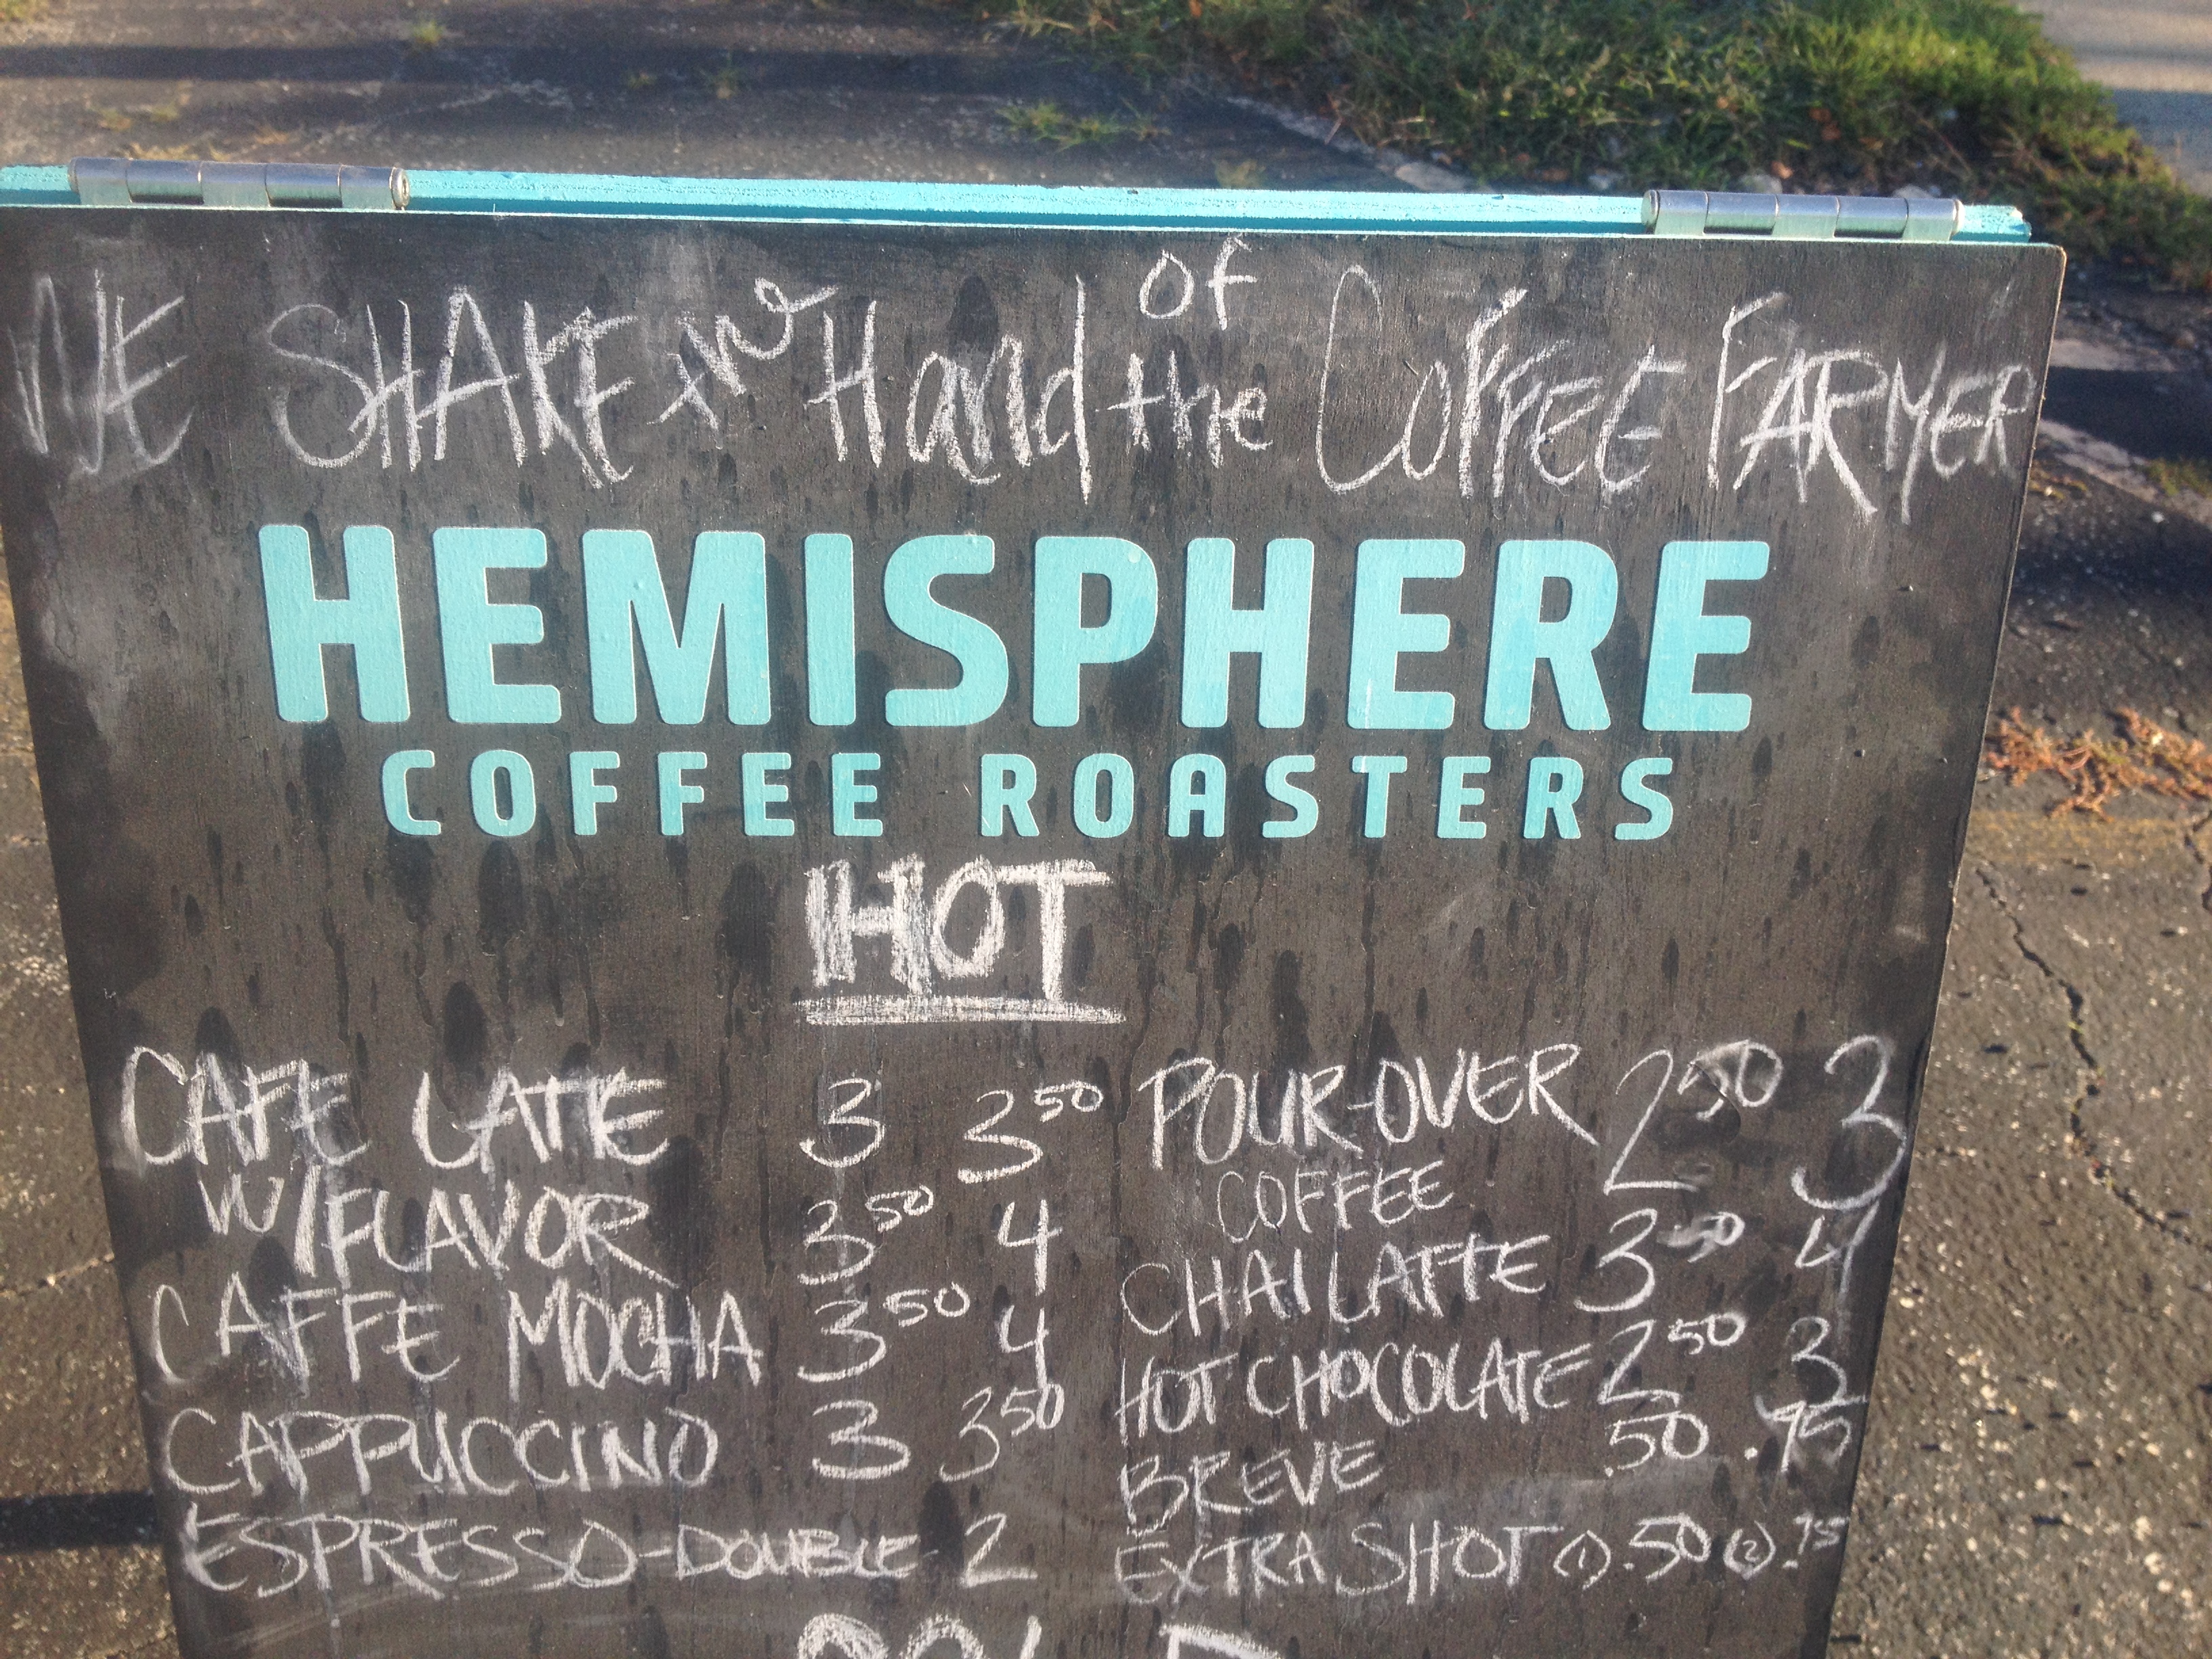 WE SHAKE the Hand of the COFFEE FARMER
HEMISPHERE
COFFEE ROASTERS
HOT
CAFE LATTE 3 3 50
W/FLAVOR 3 50 4
CAFFE MOCHA 3 50 4
CAPPUCCINO 3 3 50
ESPRESSO-DOUBLE 2
POUR-OVER 2 50 3
COFFEE
CHAI LATTE 3 50 4
HOT CHOCOLATE 2 50 3
BREVE .50 .75
EXTRA SHOT (1) .50 (2) .75